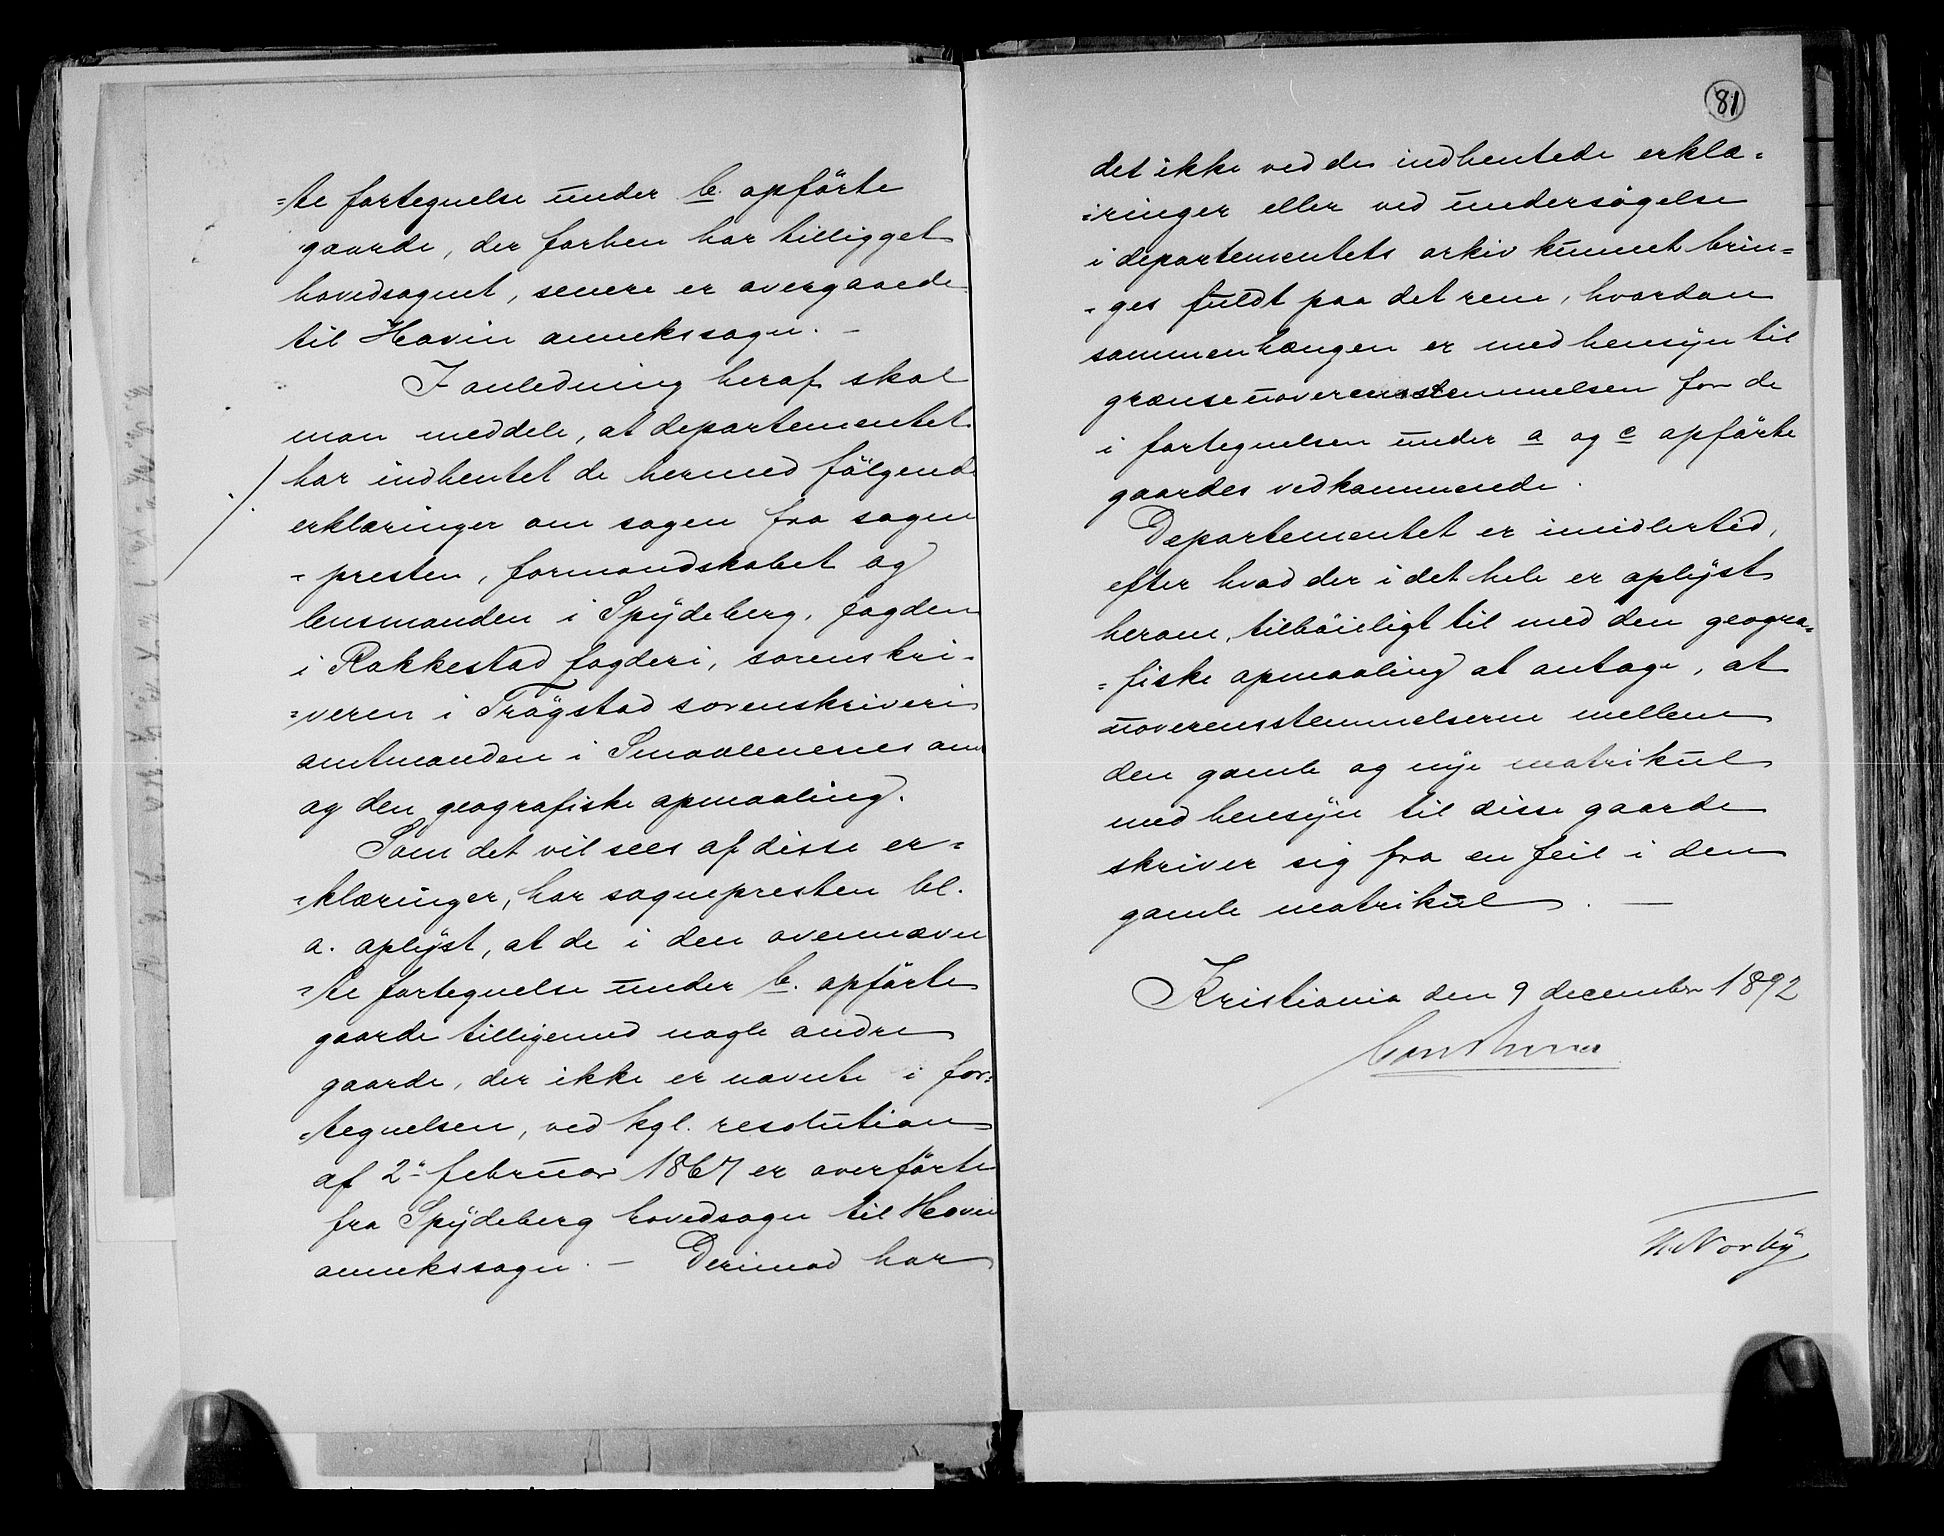 =te fortegnelse under b. opförte
gaarde, der forhen har tilligget
hovedsognet, senere er overgaaede
til Hovin annekssogn. –
I anledning heraf skal
man meddele, at departementet
har indhentet de hermed fölgende
erklæringer om sagen fra sogne
= presten, formandskabet og
lensmanden i Spydeberg, fogden
i Rakkestad fogderi, sorenskri=
=veren i Trögstad sorenskriveri
amtmanden i Smaalenenes amt
og den geografiske opmaaling.
Som det vil sees af disse er=
=klæringer, har sognepresten bl.
a. oplyst, at de i den ovennævn
=te fortegnelse under b. opförte
gaarde tilligemed nogle andre
gaarde, der ikke er nævnte i for=
=tegnelsen, ved kgl. resolution
af 2. februar 1867 er overförte
fra Spydeberg hovedsogn til Hovin
annekssogn. – Derimod har
81
det ikke ved de indhentede erklæ=
=ringer eller ved undersögelse
i departementets arkiv kunnet brin=
=ges fuldt paa det rene, hvordan
sammenhængen er med hensyn til
grænseuoverensstemmelsen for de
i fortegnelsen under a og c opförte
gaardes vedkommende.
Departementet er imidlertid,
efter hvad der i det hele er oplyst
herom, tilböieligt til med den geogra=
=fiske opmaaling at antage, at
uoverensstemmelserne mellem
den gamle og nye matrikul
med hensyn til disse gaarde
skriver sig fra en feil i den
gamle matrikul. —
Kristiania den 9 december 1892
N. Norby